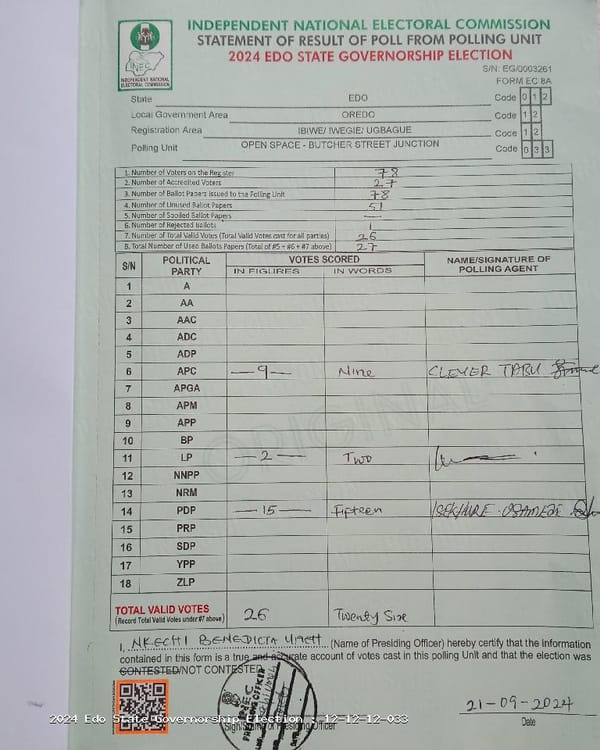 INDEPENDENT NATIONAL ELECTORAL COMMISSION
STATEMENT OF RESULT OF POLL FROM POLLING UNIT
2024 EDO STATE GOVERNORSHIP ELECTION
INEC
INDEPENDENT NATIONAL
ELECTORAL COMMISSION
S/N: EG/0003261
FORM EC 8A
State EDO Code 0 1 2
Local Government Area OREDO Code 1 2
Registration Area IBIWE/ IWEGIE/ UGBAGUE Code 1 2
Polling Unit OPEN SPACE - BUTCHER STREET JUNCTION Code 0 3 3
1. Number of Voters on the Register 78
2. Number of Accredited Voters 27
3. Number of Ballot Papers Issued to the Polling Unit 78
4. Number of Unused Ballot Papers 51
5. Number of Spoiled Ballot Papers —
6. Number of Rejected Ballots 1
7. Number of Total Valid Votes (Total Valid Votes cast for all parties) 26
8. Total Number of Used Ballots Papers (Total of #5 + #6 + #7 above) 27
S/N POLITICAL PARTY VOTES SCORED NAME/SIGNATURE OF POLLING AGENT
IN FIGURES IN WORDS
1 A
2 AA
3 AAC
4 ADC
5 ADP
6 APC —9— Nine CLEVER
7 APGA
8 APM
9 APP
10 BP
11 LP —2— Two
12 NNPP
13 NRM
14 PDP —15— Fifteen
15 PRP
16 SDP
17 YPP
18 ZLP
ORIGINAL
TOTAL VALID VOTES 26 Twenty Six
(Record Total Valid Votes under #7 above)
I, NKECHI BENEDICTA (Name of Presiding Officer) hereby certify that the information
contained in this form is a true and accurate account of votes cast in this polling Unit and that the election was
CONTESTED/NOT CONTESTED
INEC
PRESIDING OFFICER
21-09-2024
Date
2024 Edo State Governorship Election : 12-12-12-033